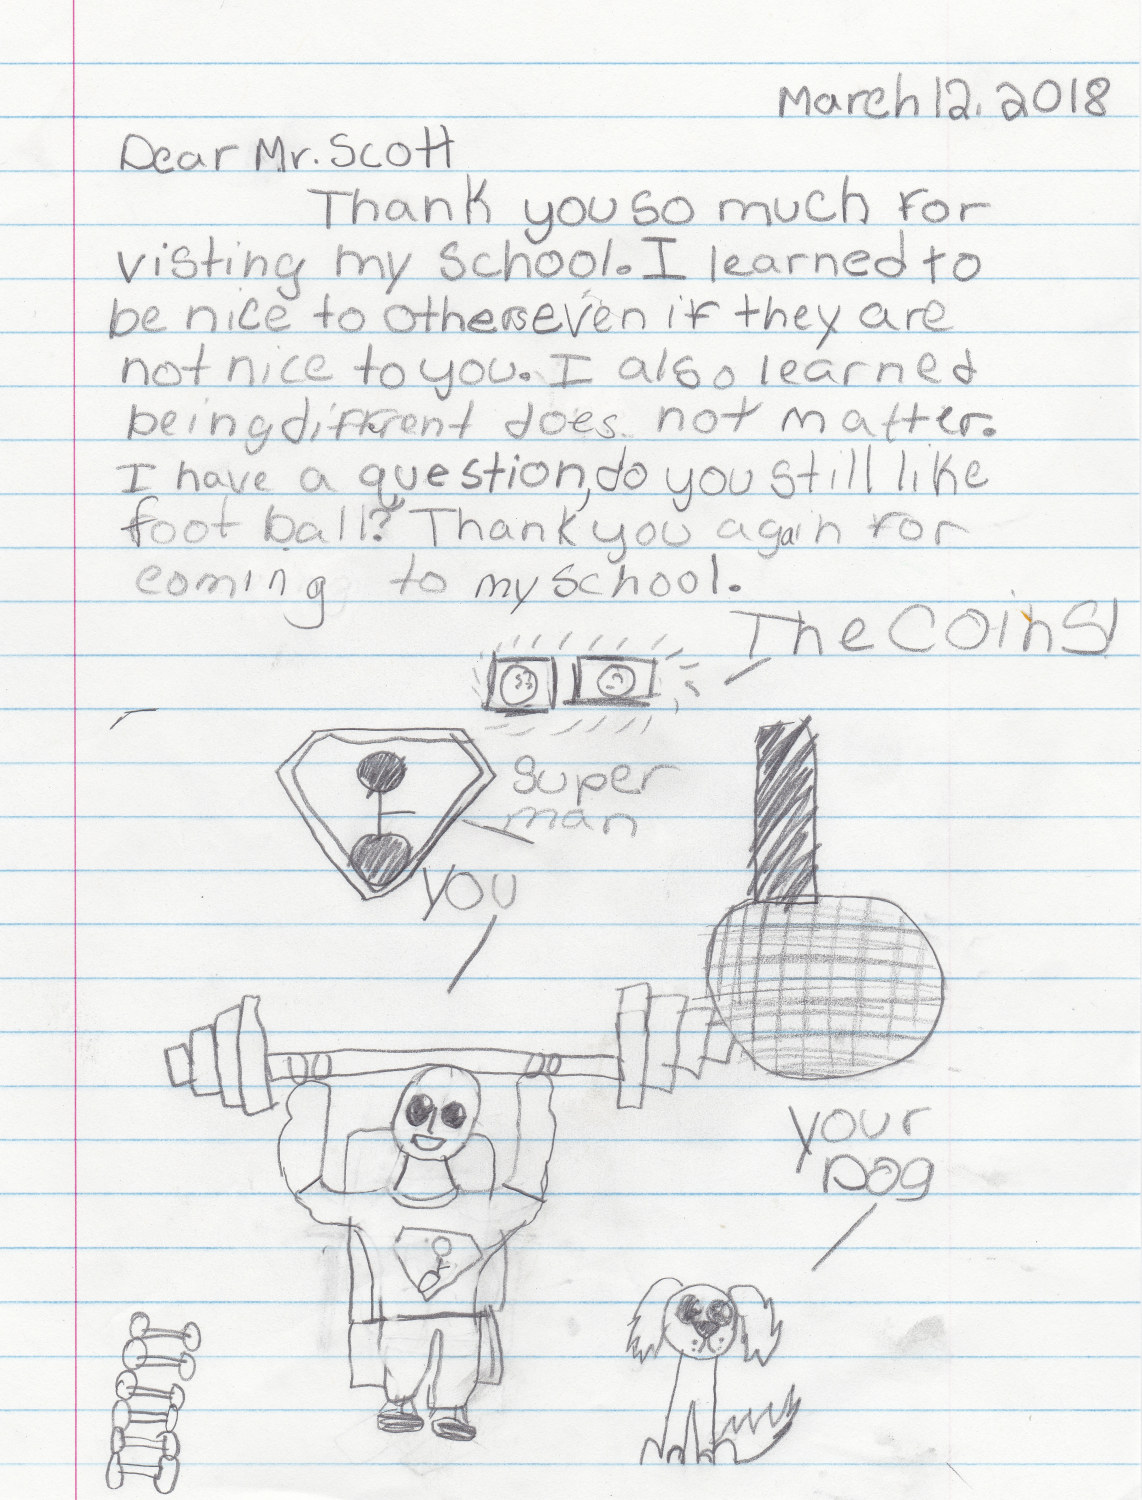 March 12, 2018
Dear Mr. Scott
Thank you so much for
visting my school. I learned to
be nice to others even if they are
not nice to you. I also learned
being different does not matter.
I have a question, do you still like
foot ball? Thank you again for
coming to my school.
The Coins
Super
man
You
Your
Dog